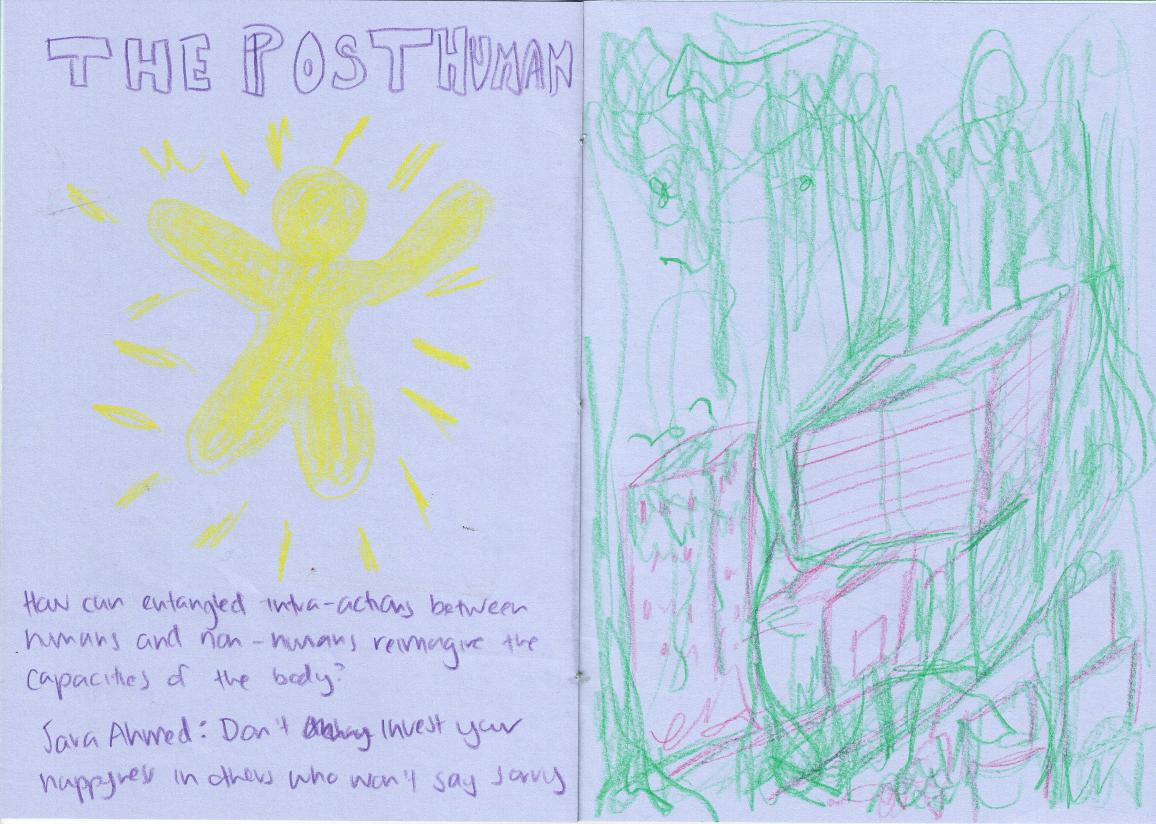 THE POSTHUMAN
How can entangled intra-actions between
humans and non-humans reimagine the
capacities of the body?
Sara Ahmed: Don't invest your
happyness in others who won't say sorry